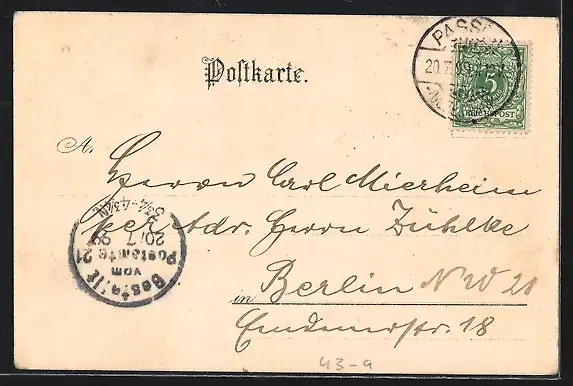 PASSOW
20.7.99
5
REICHSPOST
Postkarte.
A.
Herrn Carl Mierheim
per Adr. Herrn Zühlke
in Berlin NW 21
Emdenerstr. 18
Bestellt
vom
Postamte 21
20/7 99
3¾-4¾N.
43-9